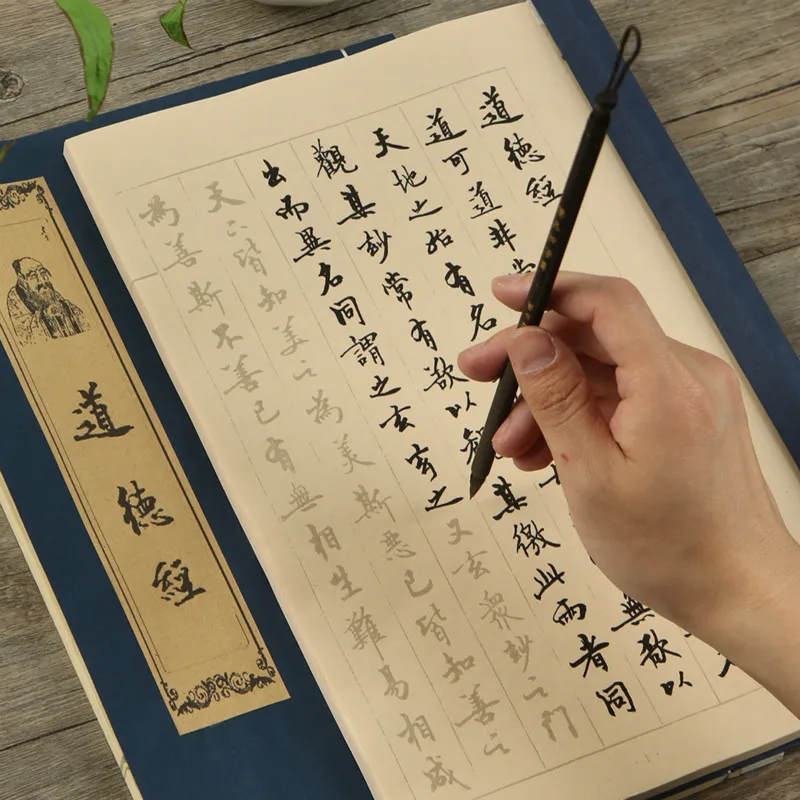 道德經
道可道非常
天地之始有名
無欲以
觀其妙常有欲以觀其徼此兩者同
出而異名同謂之玄玄之又玄衆妙之門
天下皆知美之為美斯惡已皆知善之
為善斯不善已有無相生難易相成
道德經